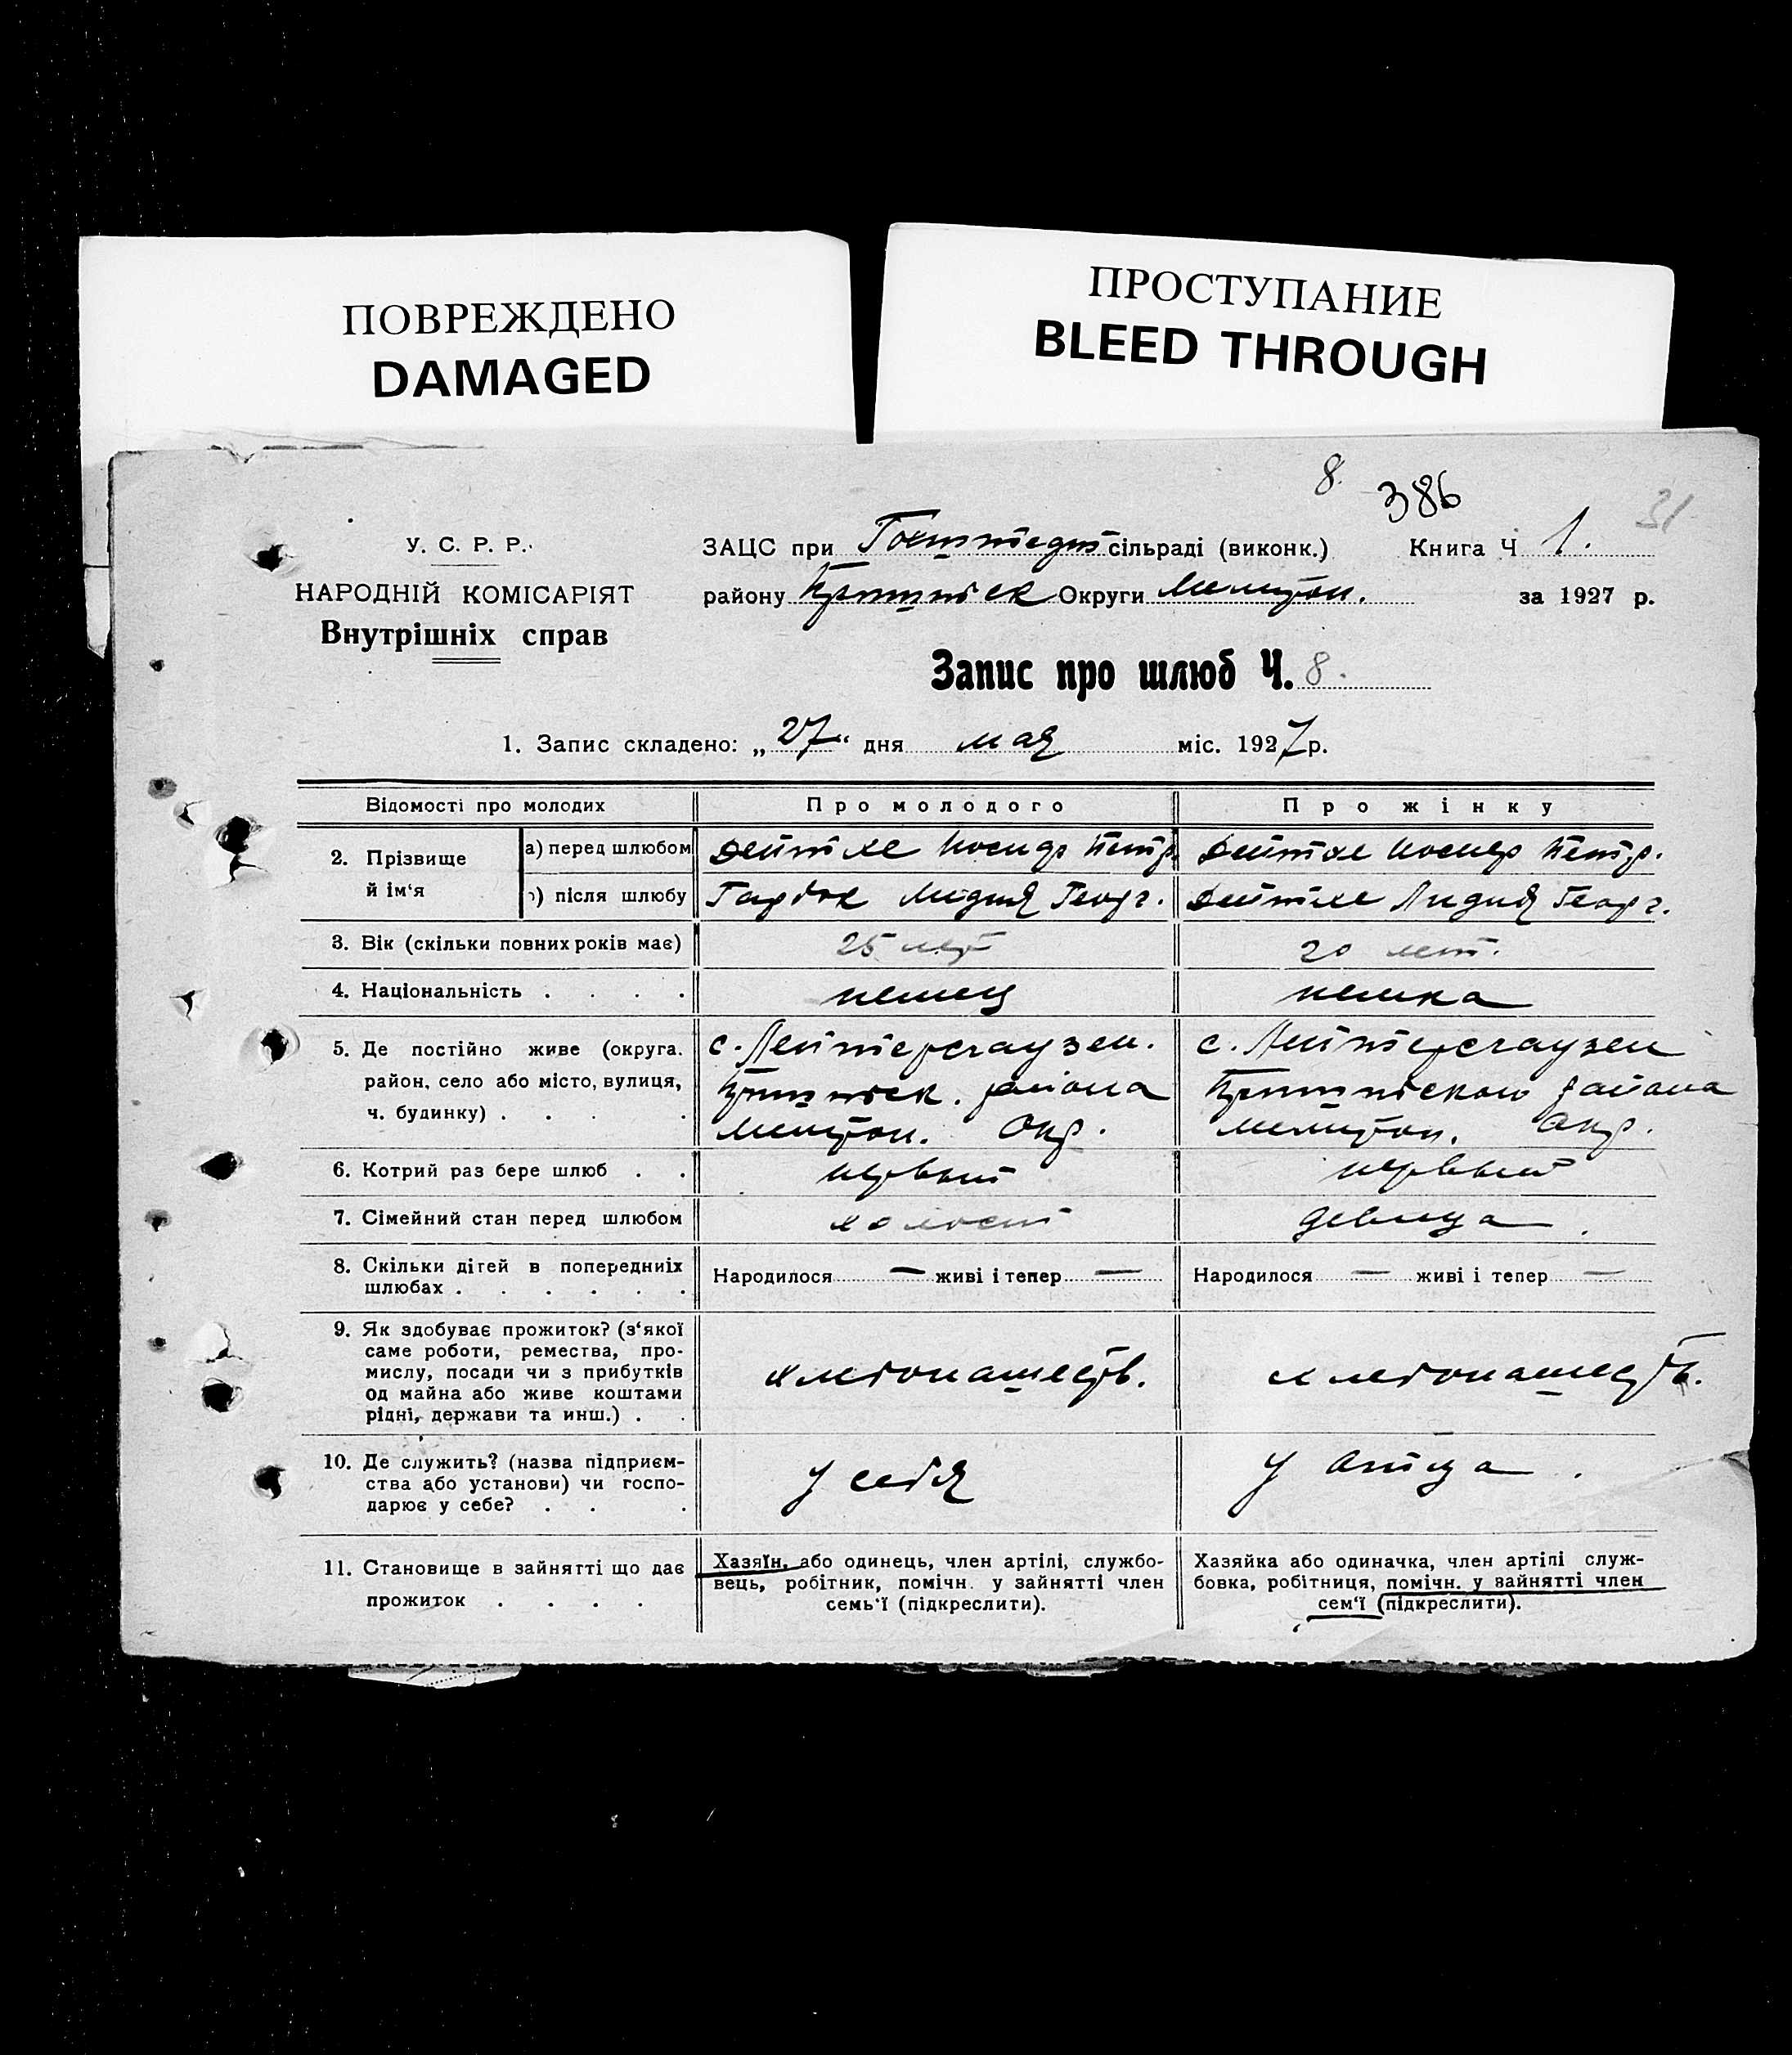 ПОВРЕЖДЕНО
DAMAGED
ПРОСТУПАНИЕ
BLEED THROUGH
8. 386 31
У. С. Р. Р.
НАРОДНІЙ КОМІСАРІЯТ
Внутрішніх справ
ЗАЦС при Гоштедт сільраді (виконк.) Книга Ч 1.
району Пришибск Округи Мелитоп. за 1927 р.
Запис про шлюб Ч. 8.
1. Запис складено: „27“ дня мая міс. 1927 р.
Відомості про молодих Про молодого Про жінку
2. Прізвище й ім‘я
а) перед шлюбом Дейтхе Иосиф Петр. Дейтхе Иосиф Петр.
б) після шлюбу Лидия Георг. Дейтхе Лидия Георг.
3. Вік (скільки повних років має) 25 лет 20 лет.
4. Національність . . . . немец немка
5. Де постійно живе (округа. район, село або місто, вулиця, ч. будинку) . . . .
с. Лейтерсгаузен. Пришибск. района Мелитоп. Окр.
с. Лейтерсгаузен Пришибского района Мелитоп. Окр.
6. Котрий раз бере шлюб . . первый первый
7. Сімейний стан перед шлюбом холост девица.
8. Скільки дітей в попередниіх шлюбах . . . . . .
Народилося — живі і тепер — Народилося — живі і тепер —
9. Як здобуває прожиток? (з‘якої
саме роботи, ремества, про-
мислу, посади чи з прибутків
од майна або живе коштами
рідні, держави та инш.) . .
хлебопашеств. хлебопашеств.
10. Де служить? (назва підприєм-
ства або установи) чи госпо-
дарює у себе? . . .
у себя у отца.
11. Становище в зайнятті що дає
прожиток . . . .
Хазяїн, або одинець, член артілі, службо-
вець, робітник, помічн. у зайнятті член
семь‘ї (підкреслити).
Хазяйка або одиначка, член артілі служ-
бовка, робітниця, помічн. у зайнятті член
сем‘ї (підкреслити).